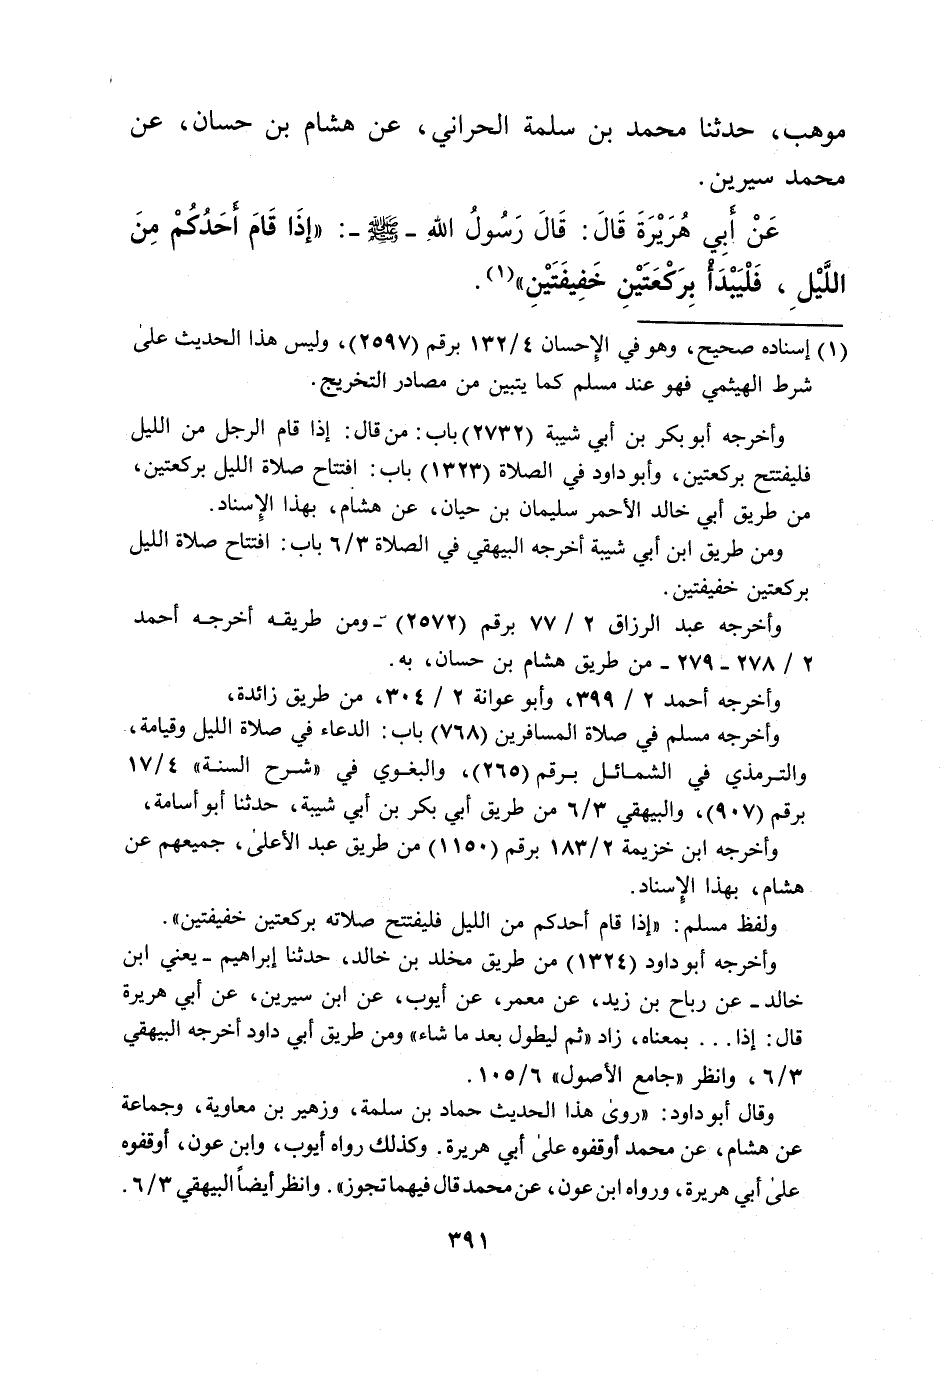 موهب، حدثنا محمد بن سلمة الحراني، عن هشام بن حسان، عن
محمد سيرين.
عَنْ أَبِي هُرَيْرَةَ قَالَ: قَالَ رَسُولُ اللهِ - ﷺ -: «إِذَا قَامَ أَحَدُكُمْ مِنَ
اللَّيْلِ، فَلْيَبْدَأْ بِرَكْعَتَيْنِ خَفِيفَتَيْنِ»(١).
(١) إسناده صحيح، وهو في الإحسان ١٣٢/٤ برقم (٢٥٩٧)، وليس هذا الحديث علىٰ
شرط الهيثمي فهو عند مسلم كما يتبين من مصادر التخريج.
وأخرجه أبو بكر بن أبي شيبة (٢٧٣٢) باب: من قال: إذا قام الرجل من الليل
فليفتتح بركعتين، وأبو داود في الصلاة (١٣٢٣) باب: افتتاح صلاة الليل بركعتين،
من طريق أبي خالد الأحمر سليمان بن حيان، عن هشام، بهذا الإسناد.
ومن طريق ابن أبي شيبة أخرجه البيهقي في الصلاة ٦/٣ باب: افتتاح صلاة الليل
بركعتين خفيفتين.
وأخرجه عبد الرزاق ٢ / ٧٧ برقم (٢٥٧٢) - ومن طريقه أخرجه أحمد
٢ / ٢٧٨ - ٢٧٩ - من طريق هشام بن حسان، به.
وأخرجه أحمد ٢ / ٣٩٩، وأبو عوانة ٢ / ٣٠٤، من طريق زائدة،
وأخرجه مسلم في صلاة المسافرين (٧٦٨) باب: الدعاء في صلاة الليل وقيامة،
والترمذي في الشمائل برقم (٢٦٥)، والبغوي في «شرح السنة» ١٧/٤
برقم (٩٠٧)، والبيهقي ٦/٣ من طريق أبي بكر بن أبي شيبة، حدثنا أبو أسامة،
وأخرجه ابن خزيمة ١٨٣/٢ برقم (١١٥٠) من طريق عبد الأعلىٰ، جميعهم عن
هشام، بهذا الإسناد.
ولفظ مسلم: «إذا قام أحدكم من الليل فليفتتح صلاته بركعتين خفيفتين».
وأخرجه أبو داود (١٣٢٤) من طريق مخلد بن خالد، حدثنا إبراهيم - يعني ابن
خالد - عن رباح بن زيد، عن معمر، عن أيوب، عن ابن سيرين، عن أبي هريرة
قال: إذا... بمعناه، زاد «ثم ليطول بعد ما شاء» ومن طريق أبي داود أخرجه البيهقي
٦/٣، وانظر «جامع الأصول» ١٠٥/٦.
وقال أبو داود: «روىٰ هذا الحديث حماد بن سلمة، وزهير بن معاوية، وجماعة
عن هشام، عن محمد أوقفوه علىٰ أبي هريرة. وكذلك رواه أيوب، وابن عون، أوقفوه
علىٰ أبي هريرة، ورواه ابن عون، عن محمد قال فيهما تجوز». وانظر أيضاً البيهقي ٦/٣.
٣٩١